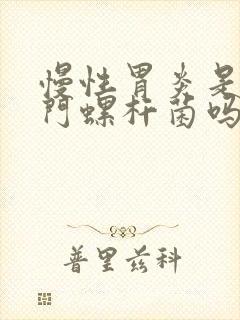 慢性胃炎是
门螺杆菌吗
普里兹科